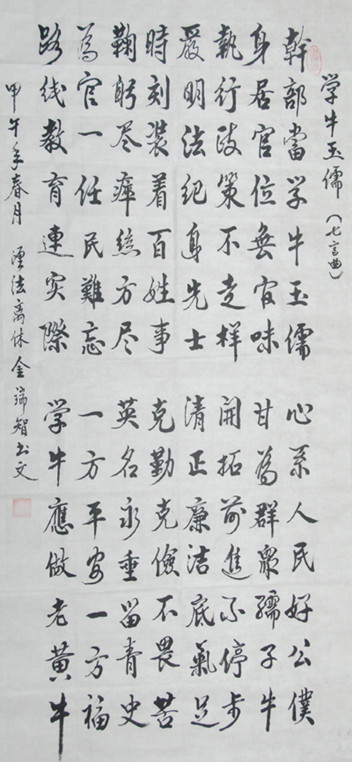 学牛玉儒（七言曲）
幹部當学牛玉儒 心系人民好公僕
身居官位無官味 甘為群眾孺子牛
執行政策不走样 開拓前進不停步
嚴明法纪身先士 清正廉洁底氣足
時刻装着百姓事 克勤克儉不畏苦
鞠躬尽瘁絲方尽 英名永垂留青史
為官一任民難忘 一方平安一方福
路线教育連实際 学牛應做老黄牛
甲午年春月 法离休金瑞智书文